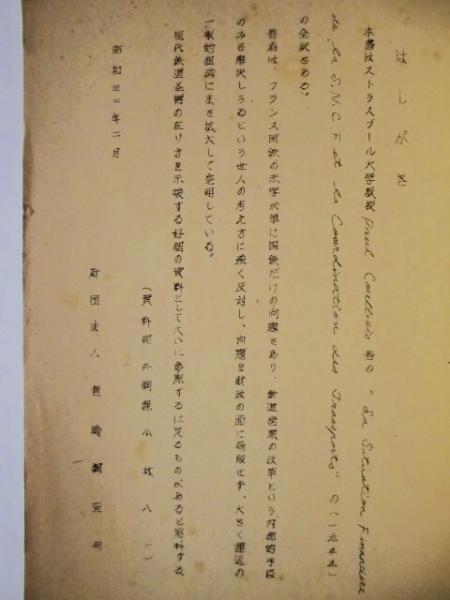 はしがき
本書はストラスブール大学教授 Paul 著の "La Situation Financière
de la S.N.C.F. et la Coordination des Transports" の(一九五五)
の全訳である。
著者は、フランス国鉄の赤字が単に国鉄だけの問題であり、鉄道営業の改革という内部的手段
のみで解決しうるという世人の考え方に強く反対し、問題を財政の面に局限せず、大きく運送の
一般的組織にまで拡大して究明している。
現代鉄道企業の在り方を示唆する好個の資料として大いに参照するに足るものがあると思料する。
(資料部 外調課 小林八一)
昭和三十年二月
財団法人 運輸調査局